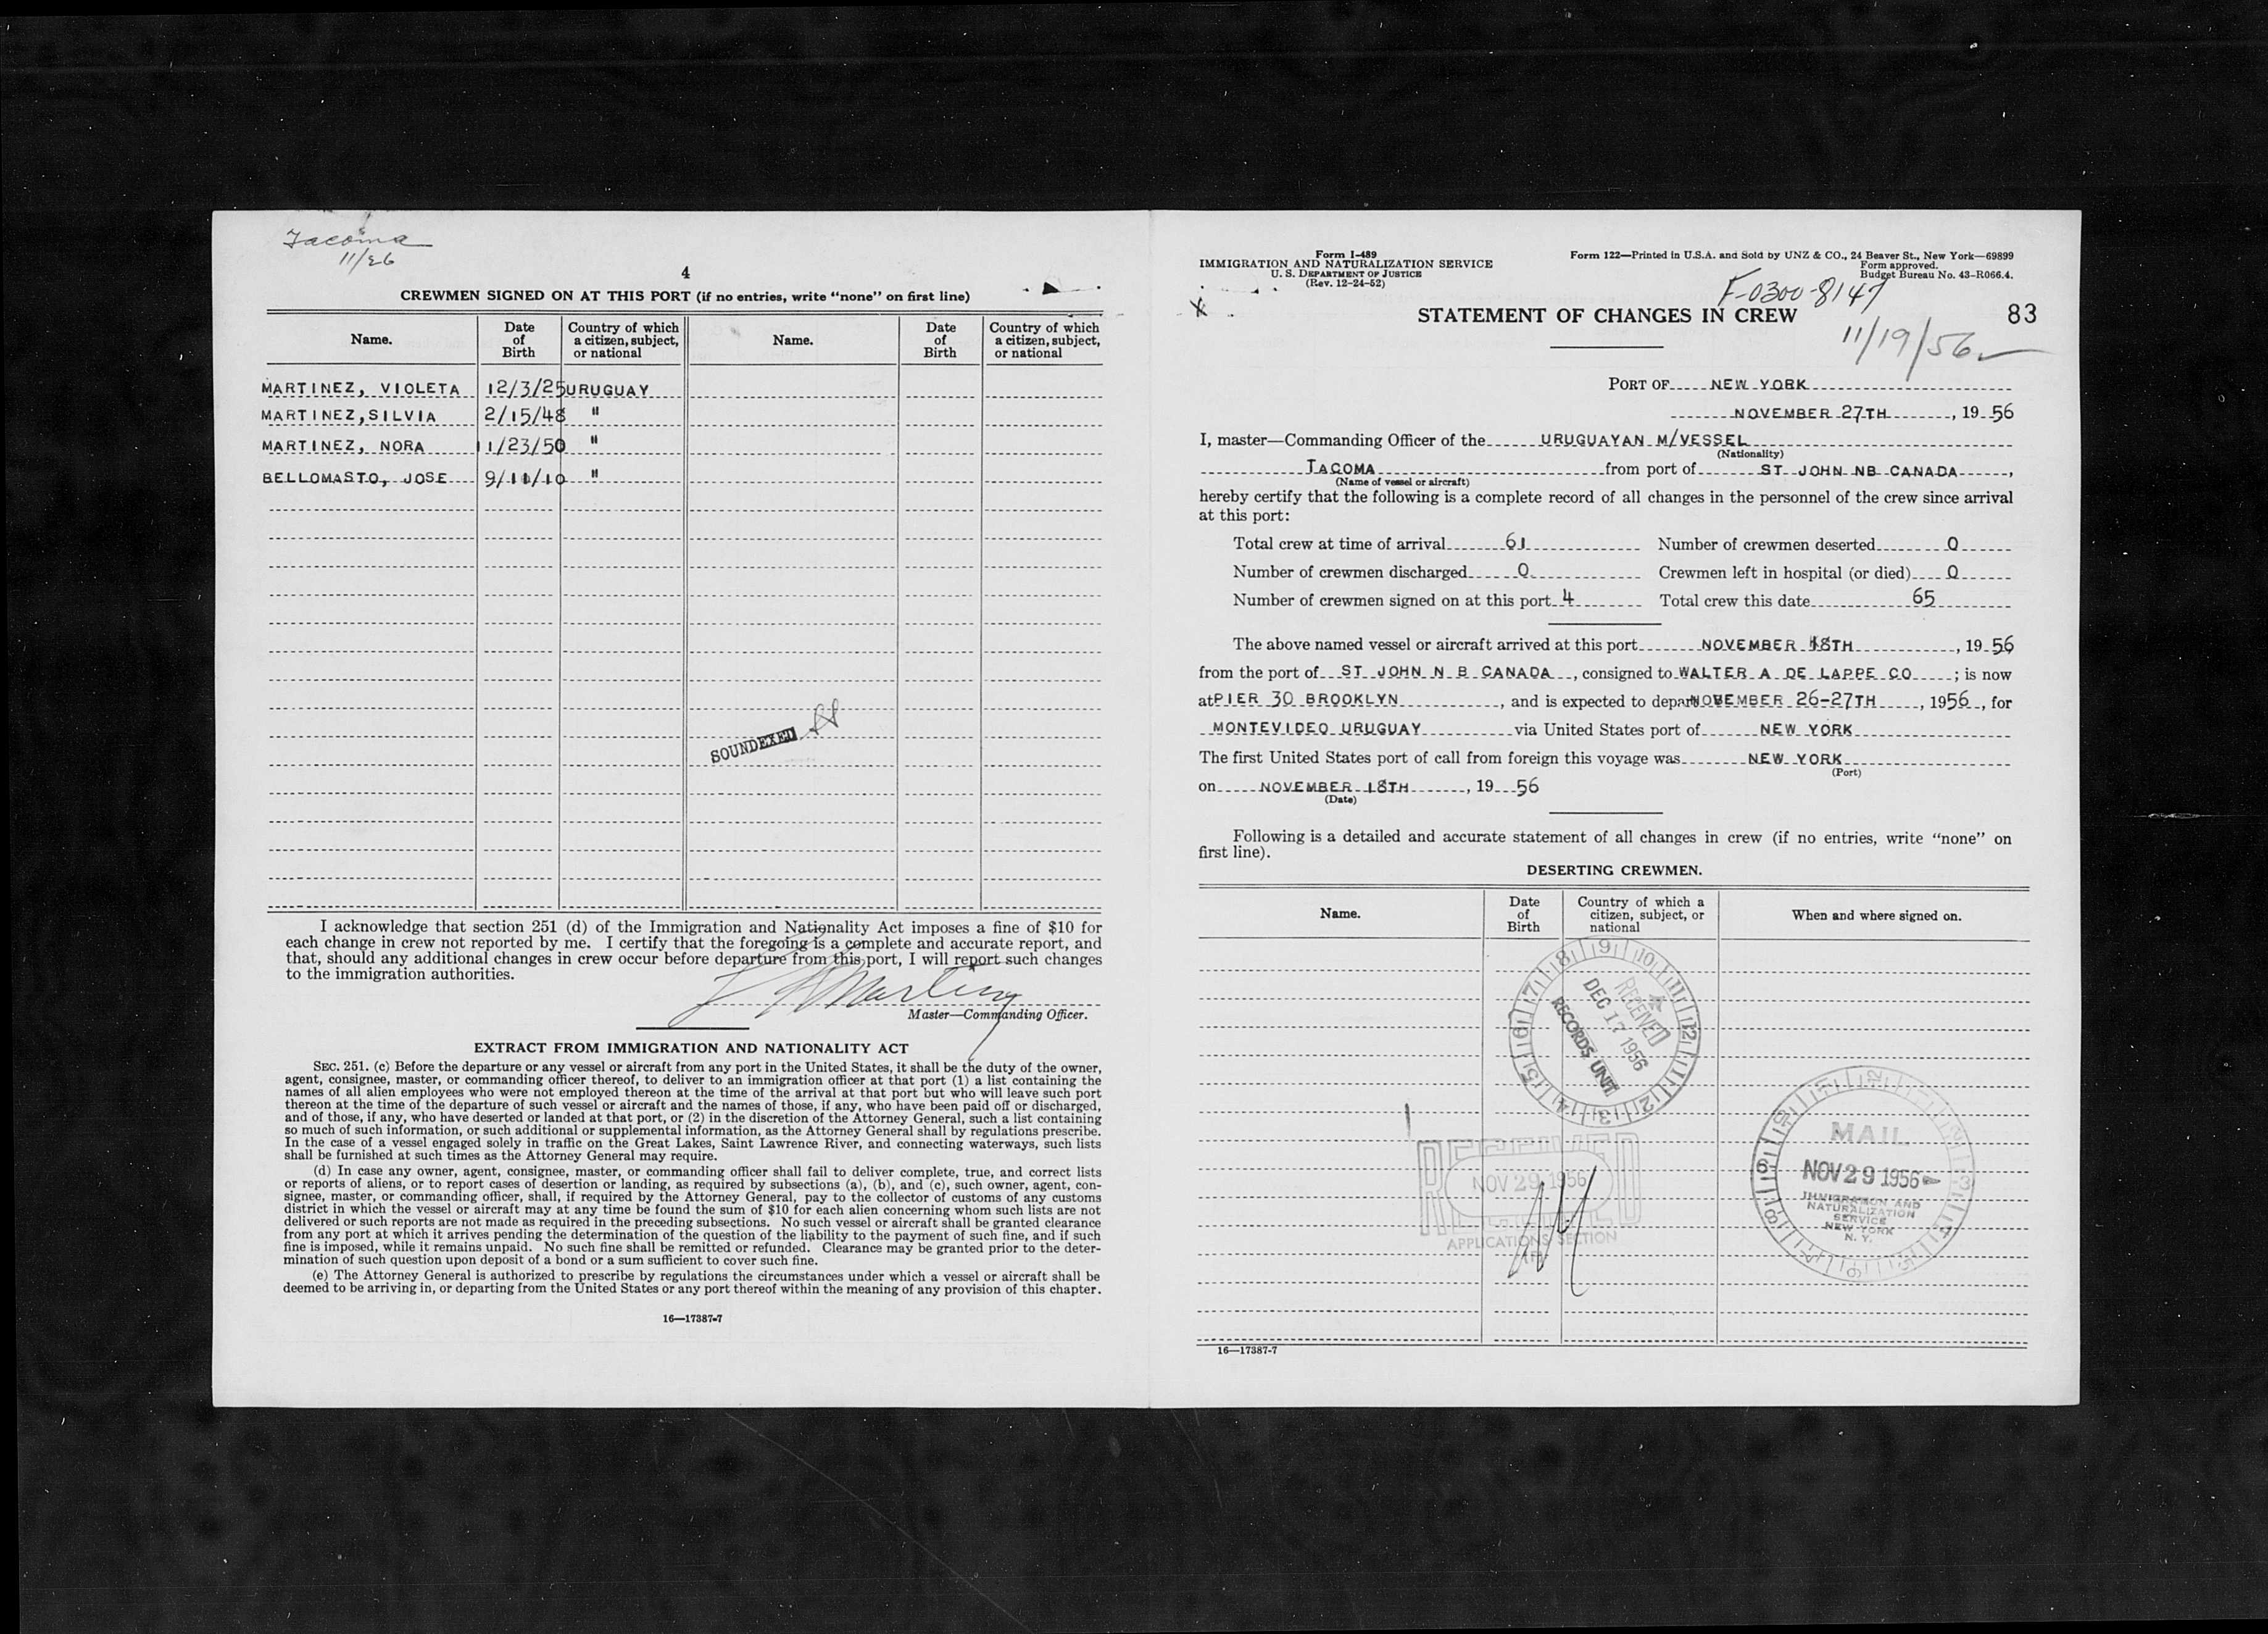 Tacoma
11/26
4
CREWMEN SIGNED ON AT THIS PORT (if no entries, write “none” on first line)
Name. Date of Birth Country of which a citizen, subject, or national Name. Date of Birth Country of which a citizen, subject, or national
MARTINEZ, VIOLETA 12/3/25 URUGUAY
MARTINEZ, SILVIA 2/15/48 "
MARTINEZ, NORA 11/23/50 "
BELLOMASTO, JOSE 9/11/10 "
SOUNDEXED
I acknowledge that section 251 (d) of the Immigration and Nationality Act imposes a fine of $10 for
each change in crew not reported by me. I certify that the foregoing is a complete and accurate report, and
that, should any additional changes in crew occur before departure from this port, I will report such changes
to the immigration authorities.
Master—Commanding Officer.
EXTRACT FROM IMMIGRATION AND NATIONALITY ACT
SEC. 251. (c) Before the departure or any vessel or aircraft from any port in the United States, it shall be the duty of the owner,
agent, consignee, master, or commanding officer thereof, to deliver to an immigration officer at that port (1) a list containing the
names of all alien employees who were not employed thereon at the time of the arrival at that port but who will leave such port
thereon at the time of the departure of such vessel or aircraft and the names of those, if any, who have been paid off or discharged,
and of those, if any, who have deserted or landed at that port, or (2) in the discretion of the Attorney General, such a list containing
so much of such information, or such additional or supplemental information, as the Attorney General shall by regulations prescribe.
In the case of a vessel engaged solely in traffic on the Great Lakes, Saint Lawrence River, and connecting waterways, such lists
shall be furnished at such times as the Attorney General may require.
(d) In case any owner, agent, consignee, master, or commanding officer shall fail to deliver complete, true, and correct lists
or reports of aliens, or to report cases of desertion or landing, as required by subsections (a), (b), and (c), such owner, agent, con-
signee, master, or commanding officer, shall, if required by the Attorney General, pay to the collector of customs of any customs
district in which the vessel or aircraft may at any time be found the sum of $10 for each alien concerning whom such lists are not
delivered or such reports are not made as required in the preceding subsections. No such vessel or aircraft shall be granted clearance
from any port at which it arrives pending the determination of the question of the liability to the payment of such fine, and if such
fine is imposed, while it remains unpaid. No such fine shall be remitted or refunded. Clearance may be granted prior to the deter-
mination of such question upon deposit of a bond or a sum sufficient to cover such fine.
(e) The Attorney General is authorized to prescribe by regulations the circumstances under which a vessel or aircraft shall be
deemed to be arriving in, or departing from the United States or any port thereof within the meaning of any provision of this chapter.
16—17387-7
Form I-489
IMMIGRATION AND NATURALIZATION SERVICE
U. S. DEPARTMENT OF JUSTICE
(Rev. 12-24-52)
Form 122—Printed in U.S.A. and Sold by UNZ & CO., 24 Beaver St., New York—69899
Form approved.
Budget Bureau No. 43-R066.4.
F-0300-8147
STATEMENT OF CHANGES IN CREW
83
11/19/56
PORT OF NEW YORK
NOVEMBER 27TH, 19 56
I, master—Commanding Officer of the URUGUAYAN M/VESSEL
(Nationality)
TACOMA from port of ST JOHN NB CANADA,
(Name of vessel or aircraft)
hereby certify that the following is a complete record of all changes in the personnel of the crew since arrival
at this port:
Total crew at time of arrival 61 Number of crewmen deserted 0
Number of crewmen discharged 0 Crewmen left in hospital (or died) 0
Number of crewmen signed on at this port 4 Total crew this date 65
The above named vessel or aircraft arrived at this port NOVEMBER 18TH, 19 56
from the port of ST JOHN N B CANADA, consigned to WALTER A DE LAPPE CO; is now
at PIER 30 BROOKLYN, and is expected to depart NOVEMBER 26-27TH, 1956, for
MONTEVIDEO URUGUAY via United States port of NEW YORK
The first United States port of call from foreign this voyage was NEW YORK
(Port)
on NOVEMBER 18TH, 19 56
(Date)
Following is a detailed and accurate statement of all changes in crew (if no entries, write “none” on
first line).
DESERTING CREWMEN.
Name. Date of Birth Country of which a citizen, subject, or national When and where signed on.
RECEIVED
DEC 17 1956
RECORDS UNIT
RECEIVED
NOV 29 1956
APPLICATIONS SECTION
MAIL
NOV 29 1956
IMMIGRATION AND
NATURALIZATION
SERVICE
NEW YORK
N. Y.
16—17387-7